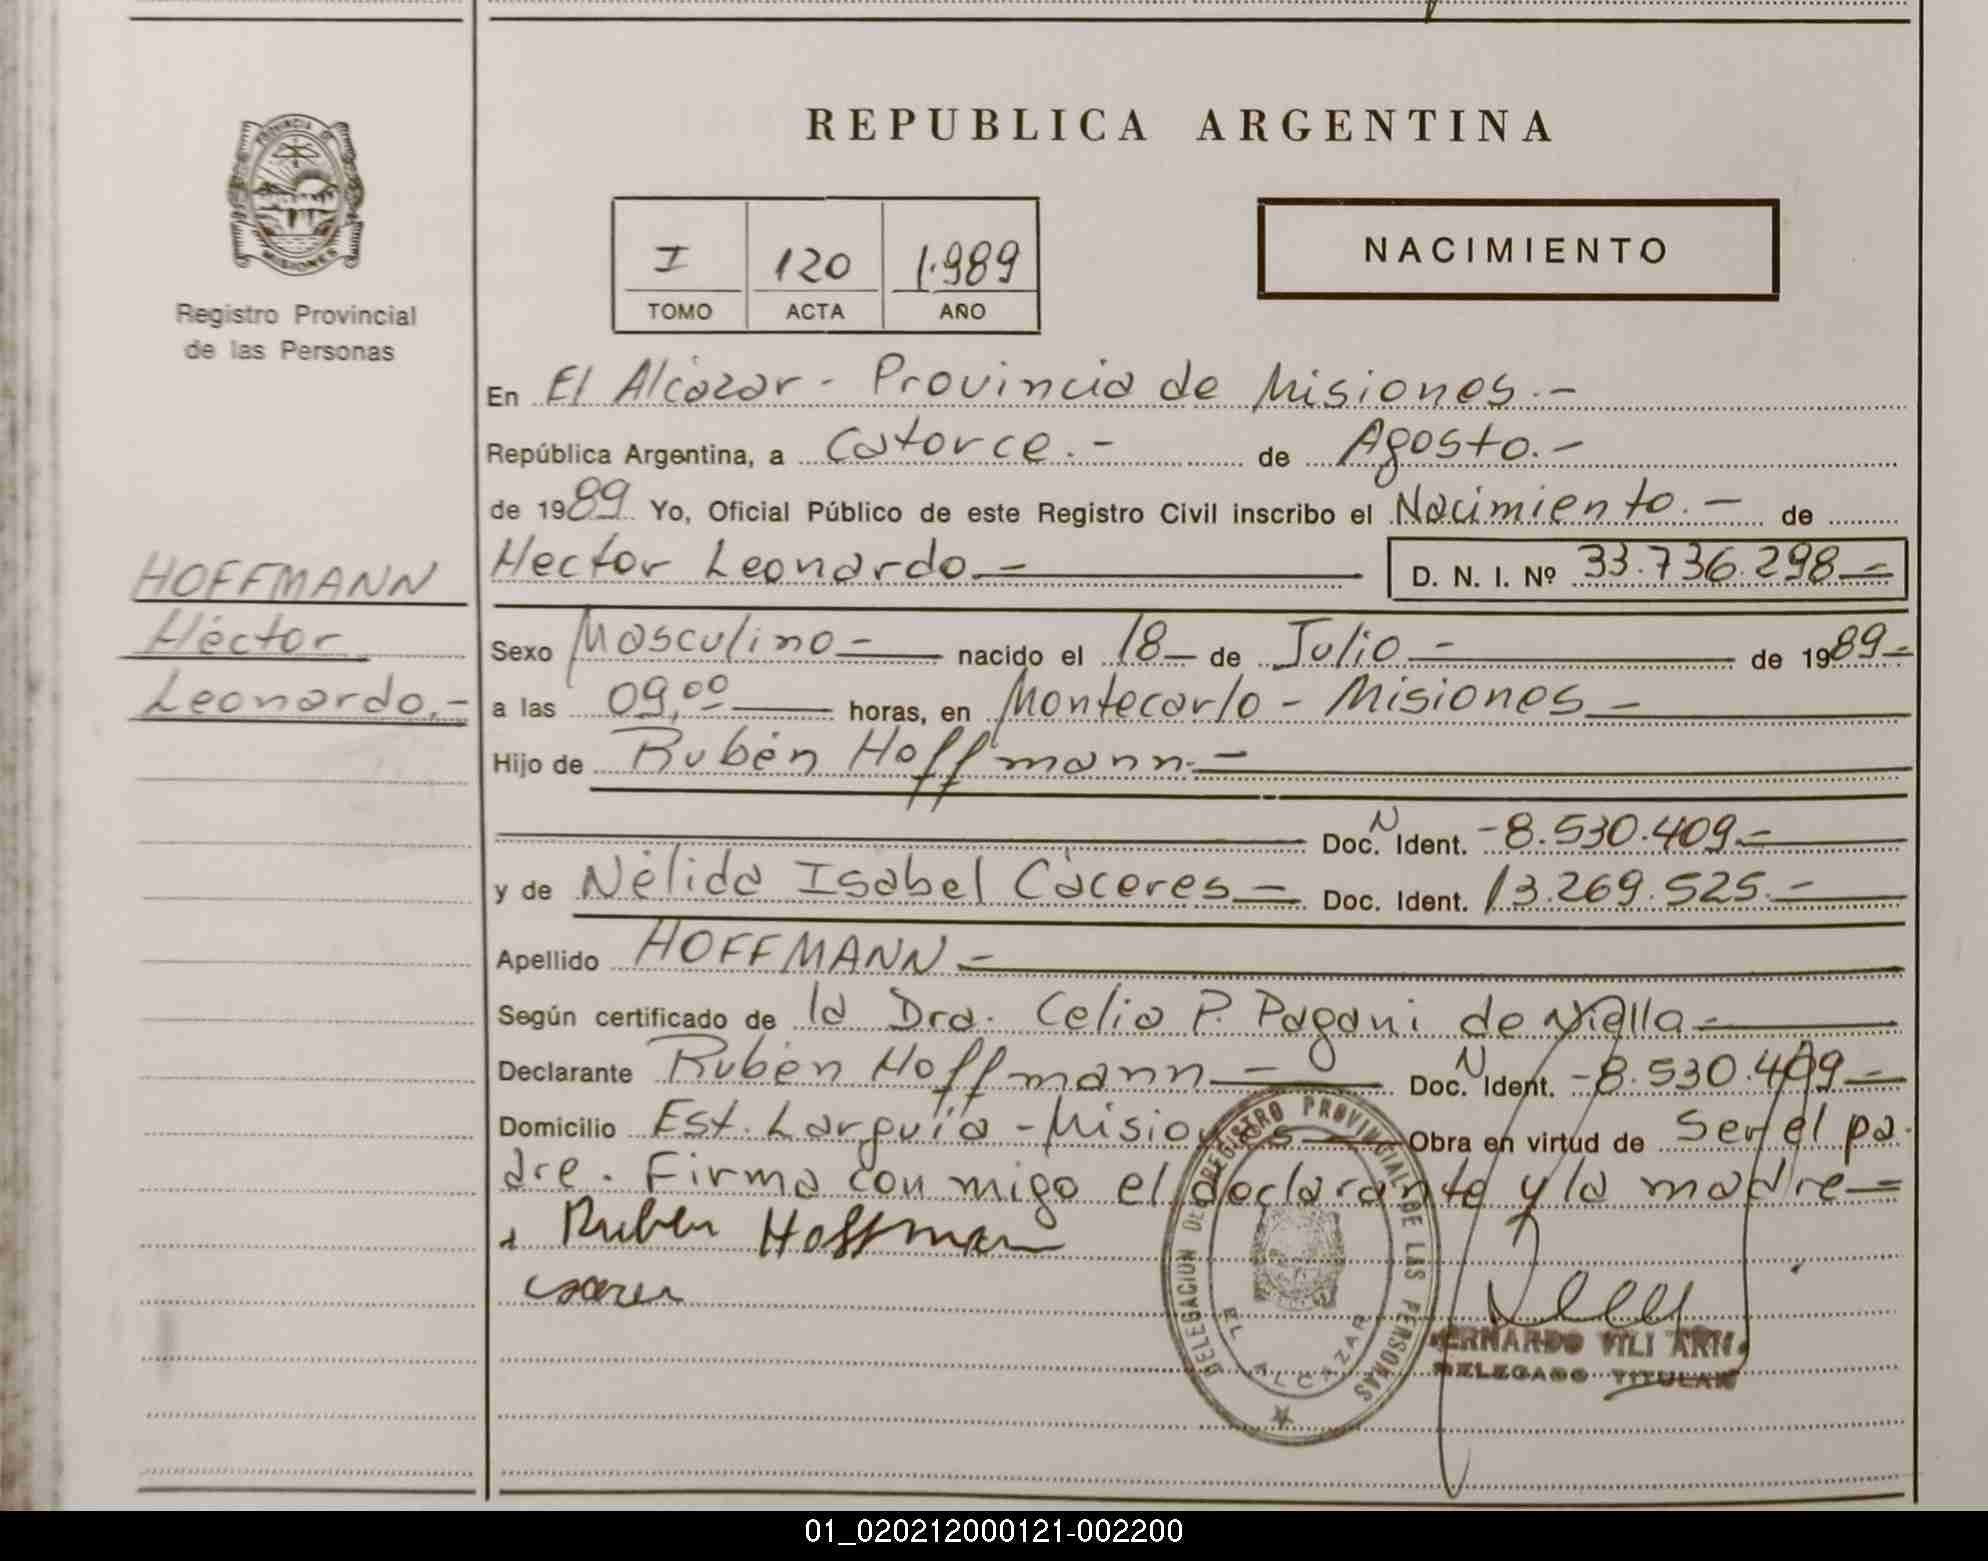 REPUBLICA ARGENTINA
PROVINCIA DE
MISIONES
Registro Provincial
de las Personas
I 120 1.989
TOMO ACTA AÑO
NACIMIENTO
En El Alcázar - Provincia de Misiones.-
República Argentina, a Catorce.- de Agosto.-
de 1989 Yo, Oficial Público de este Registro Civil inscribo el Nacimiento.- de
Hector Leonardo.- D. N. I. Nº 33.736.298-
HOFFMANN
Héctor
Leonardo.-
Sexo Masculino- nacido el 18- de Julio- de 1989-
a las 09,00 horas, en Montecarlo - Misiones-
Hijo de Rubén Hoffmann.-
Doc. N Ident. -8.530.409.-
y de Nélida Isabel Cáceres- Doc. Ident. 13.269.525.-
Apellido HOFFMANN-
Según certificado de la Dra. Celia P. Pagani de Vialla-
Declarante Rubén Hoffmann- Doc. N Ident. -8.530.409-
Domicilio Est. Larguía - Misiones- Obra en virtud de Ser el pa-
dre. Firma con migo el declarante y la madre-
Ruben Hoffman
DELEGACION DEL REGISTRO PROVINCIAL DE LAS PERSONAS
EL ALCAZAR
DELEGADO TITULAR
01_020212000121-002200